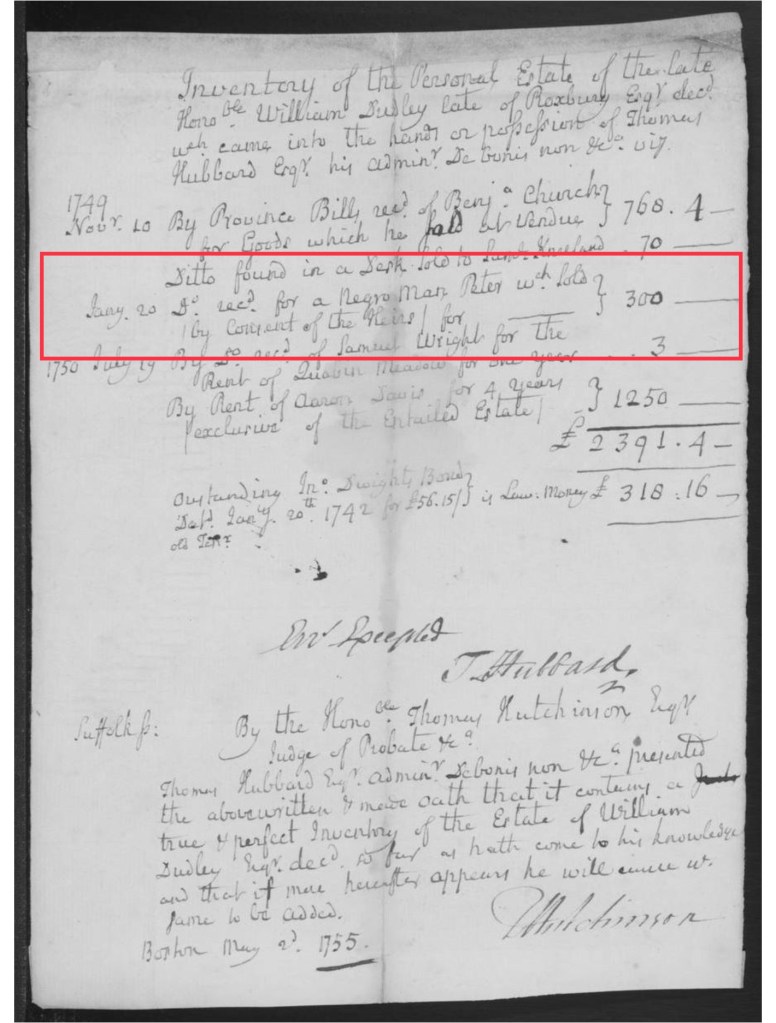 Inventory of the Personal Estate of the late
Honoble William Dudley late of Roxbury Esqr. decd.
wch came into the hands or possession of Thomas
Hubbard Esqr. his adminr. De bonis non &ca. viz.
1749
Novr. 10 By Province Bills recd. of Benja. Church
for Goods which he sold at Vendue } 768.4—
Ditto found in a Desk sold to Saml. Kneeland . 70 —
Jany. 20 Do. recd. for a Negro Man Peter wch Sold
(by consent of the Heirs) for } 300 —
1750 July 19 By Do. recd. of Samuel Wright for the
Rent of Quabin Meadow for one year . . 3 —
By Rent of Aaron Davis for 4 years
(exclusive of the Entailed Estate) } 1250 —
£ 2391.4—
Outstanding Jno. Dwights Bond
Dat. Jany. 20th. 1742 for £56.15/ } is Law: Money £ 318.16—
old Tenr.
Errs. Excepted
T. Hubbard.
Suffolk ss: By the Honoble. Thomas Hutchinson Esqr
Judge of Probate &ca
Thomas Hubbard Esqr. adminr. De bonis non &ca. presented
the abovewritten & made oath that it contains a
true & perfect Inventory of the Estate of William
Dudley Esqr. decd. so far as hath come to his knowledge
and that if more hereafter appears he will cause
same to be added.
T Hutchinson
Boston May 2d. 1755.